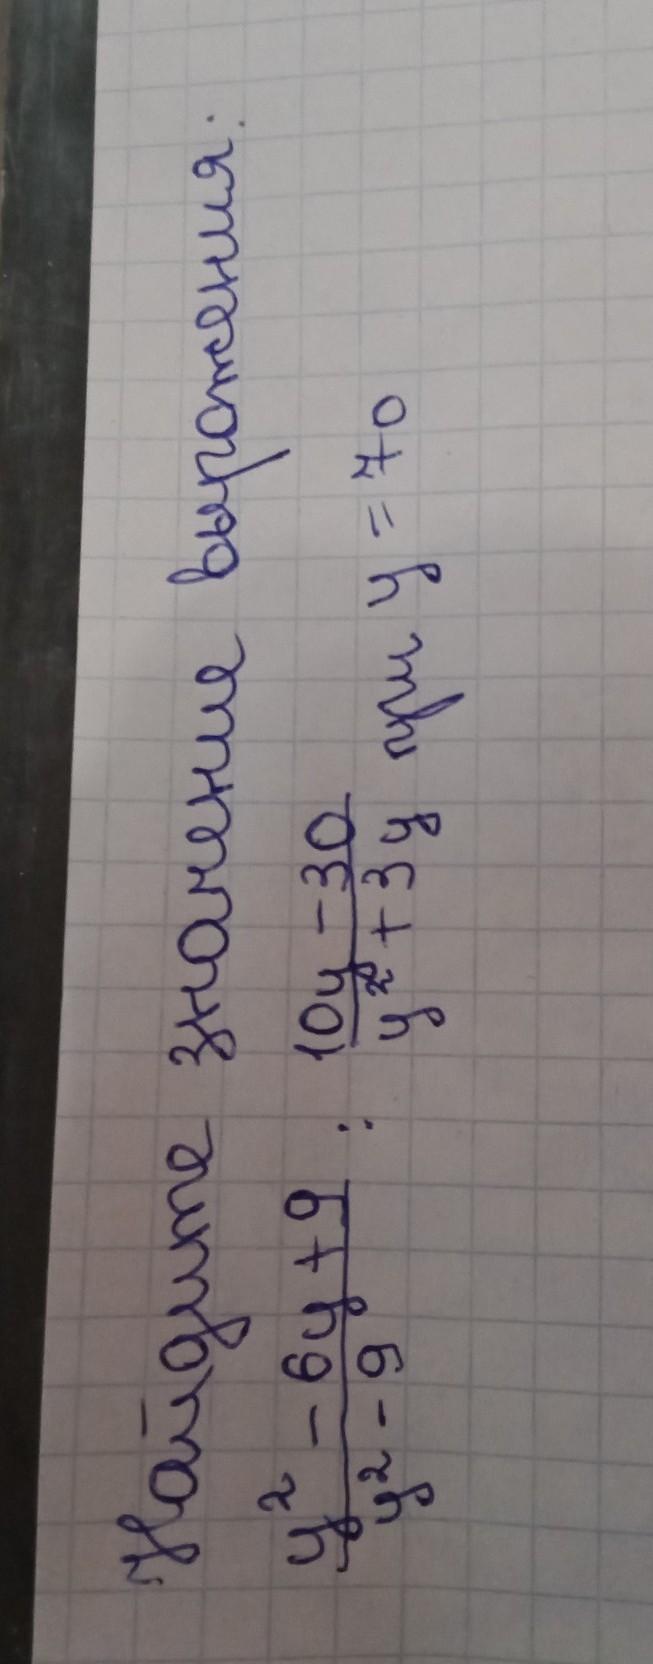 Найдите значение выражения:
y² - 6y + 9 / y² - 9 : 10y - 30 / y² + 3y при y = 70